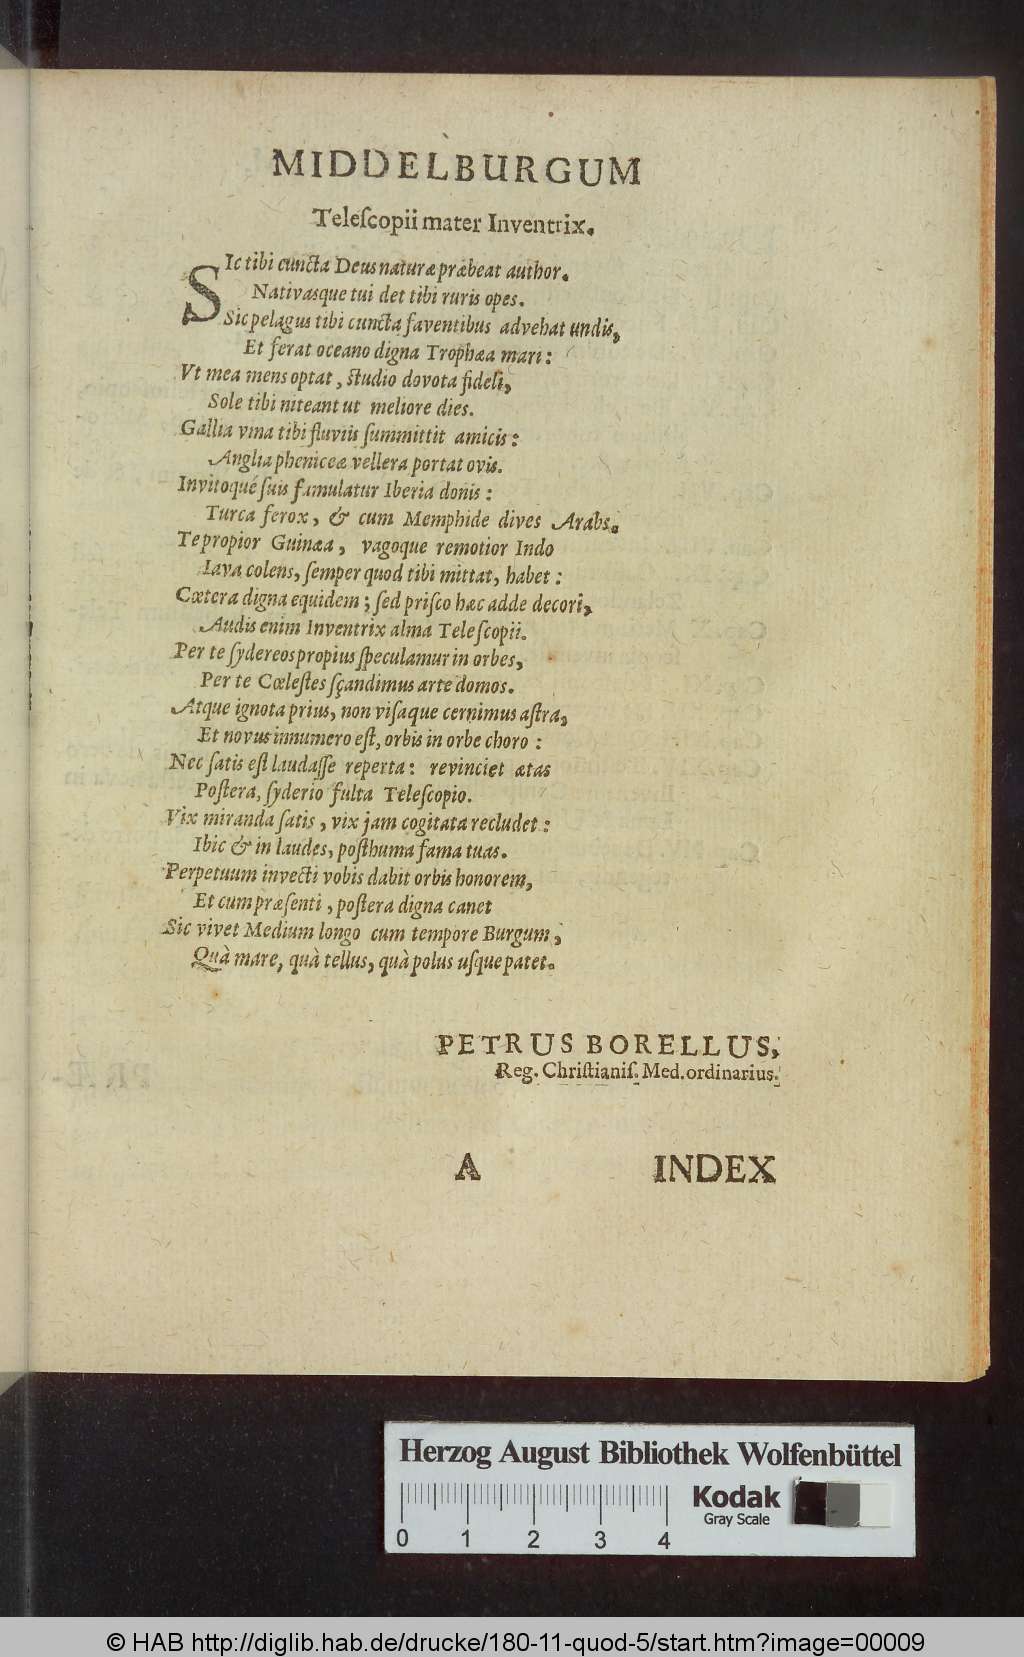 MIDDELBURGUM
Teleſcopii mater Inventrix.
SIc tibi cuncta Deus naturæ præbeat author.
Nativasque tui det tibi ruris opes.
Sic pelagus tibi cuncta faventibus advehat undis,
Et ferat oceano digna Trophæa mari:
Vt mea mens optat, ſtudio dovota fideli,
Sole tibi niteant ut meliore dies.
Gallia vina tibi fluviis ſummittit amicis:
Anglia pheniceæ vellera portat ovis.
Invitoqué ſuis famulatur Iberia donis:
Turca ferox, & cum Memphide dives Arabs.
Te propior Guinæa, vagoque remotior Indo
Iava colens, ſemper quod tibi mittat, habet:
Cætera digna equidem; ſed priſco hæc adde decori,
Audis enim Inventrix alma Teleſcopii.
Per te ſydereos propius ſpeculamur in orbes,
Per te Cœleſtes ſçandimus arte domos.
Atque ignota prius, non viſaque cernimus aſtra,
Et novus innumero eſt, orbis in orbe choro:
Nec ſatis eſt laudaſſe reperta: revinciet ætas
Poſtera, ſyderio fulta Teleſcopio.
Vix miranda ſatis, vix jam cogitata recludet:
Ibic & in laudes, poſthuma fama tuas.
Perpetuum invecti vobis dabit orbis honorem,
Et cum præſenti, poſtera digna canet
Sic vivet Medium longo cum tempore Burgum,
Quà mare, quà tellus, quà polus uſque patet.
PETRUS BORELLUS,
Reg. Chriſtianiſ. Med. ordinarius.
A INDEX
PRÆ-
Herzog August Bibliothek Wolfenbüttel
Kodak
Gray Scale
0 1 2 3 4
© HAB http://diglib.hab.de/drucke/180-11-quod-5/start.htm?image=00009